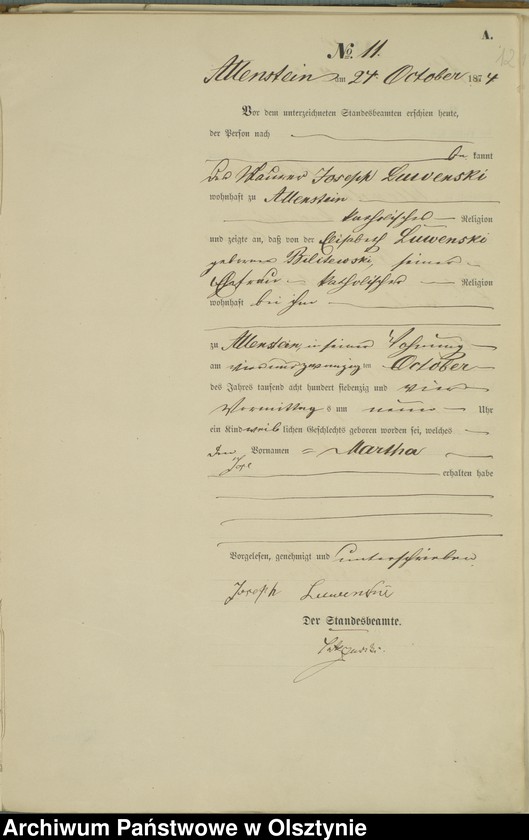 A.
No. 11.
Allenstein am 24. October 1874
Vor dem unterzeichneten Standesbeamten erschien heute,
der Person nach
kannt
der Maurer Joseph Luwenski
wohnhaft zu Allenstein
katholischer Religion
und zeigte an, daß von der Elisabeth Luwenski
geborene Bilitewski, seiner
Ehefrau katholischer Religion
wohnhaft bei ihm
zu Allenstein, in seiner Wohnung
am October
des Jahres tausend acht hundert siebenzig und vier
Vormittags um neun Uhr
ein Kind weiblichen Geschlechts geboren worden sei, welches
den Vornamen = Martha
erhalten habe
Vorgelesen, genehmigt und unterschrieben
Joseph Luwenski
Der Standesbeamte.
Archiwum Państwowe w Olsztynie